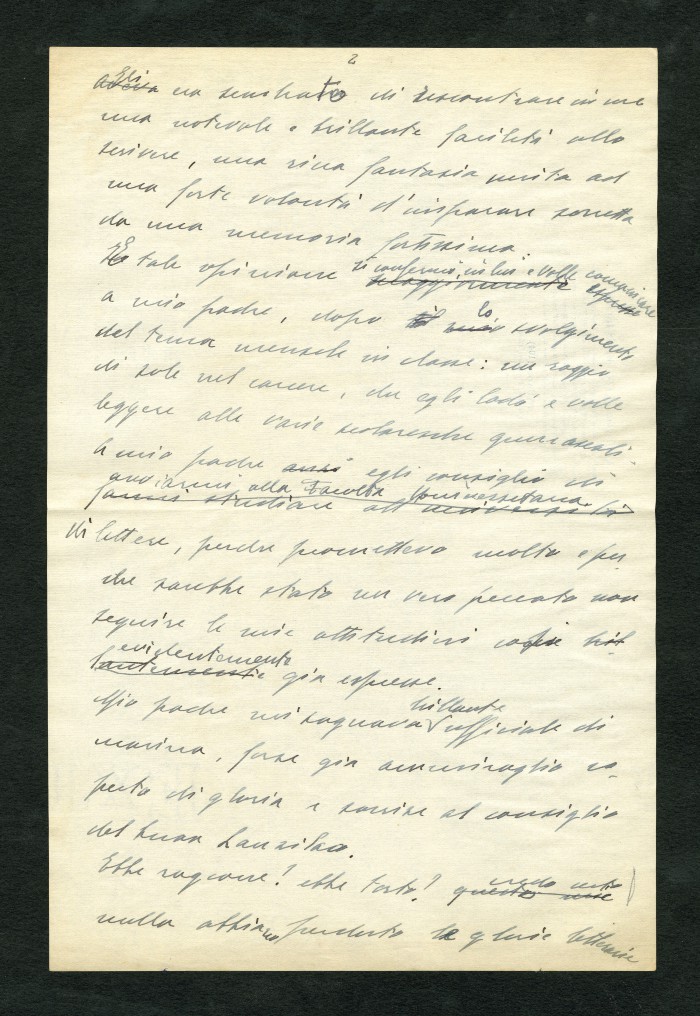 2
Gli
avevo era sembrato di riscontrare in me
una notevole e brillante facilità allo
scrivere, una ricca fantasia unita ad
una forte volontà d'imparare sorretta
da una memoria fortissima.
E tale opinione si confermò in lui e volle comunicare
a mio padre, dopo lo svolgimento
del tema mensile in classe: un raggio
di sole nel carcere, che egli lodò e volle
leggere alle varie scolaresche
A mio padre anzi egli consigliò di
avviarmi alla Facoltà Universitaria
farmi studiare all'università
di lettere, perché promettevo molto e per
che sarebbe stato un vero peccato non
seguire le mie attitudini così bril
evidentemente
lantemente già espresse.
brillante
Mio padre mi sognava ufficiale di
marina, forse già ammiraglio co
perto di gloria e sorrise al consiglio
del buon
Ebbe ragione? ebbe torto? credo certo
nulla abbiano perduto le glorie letterarie